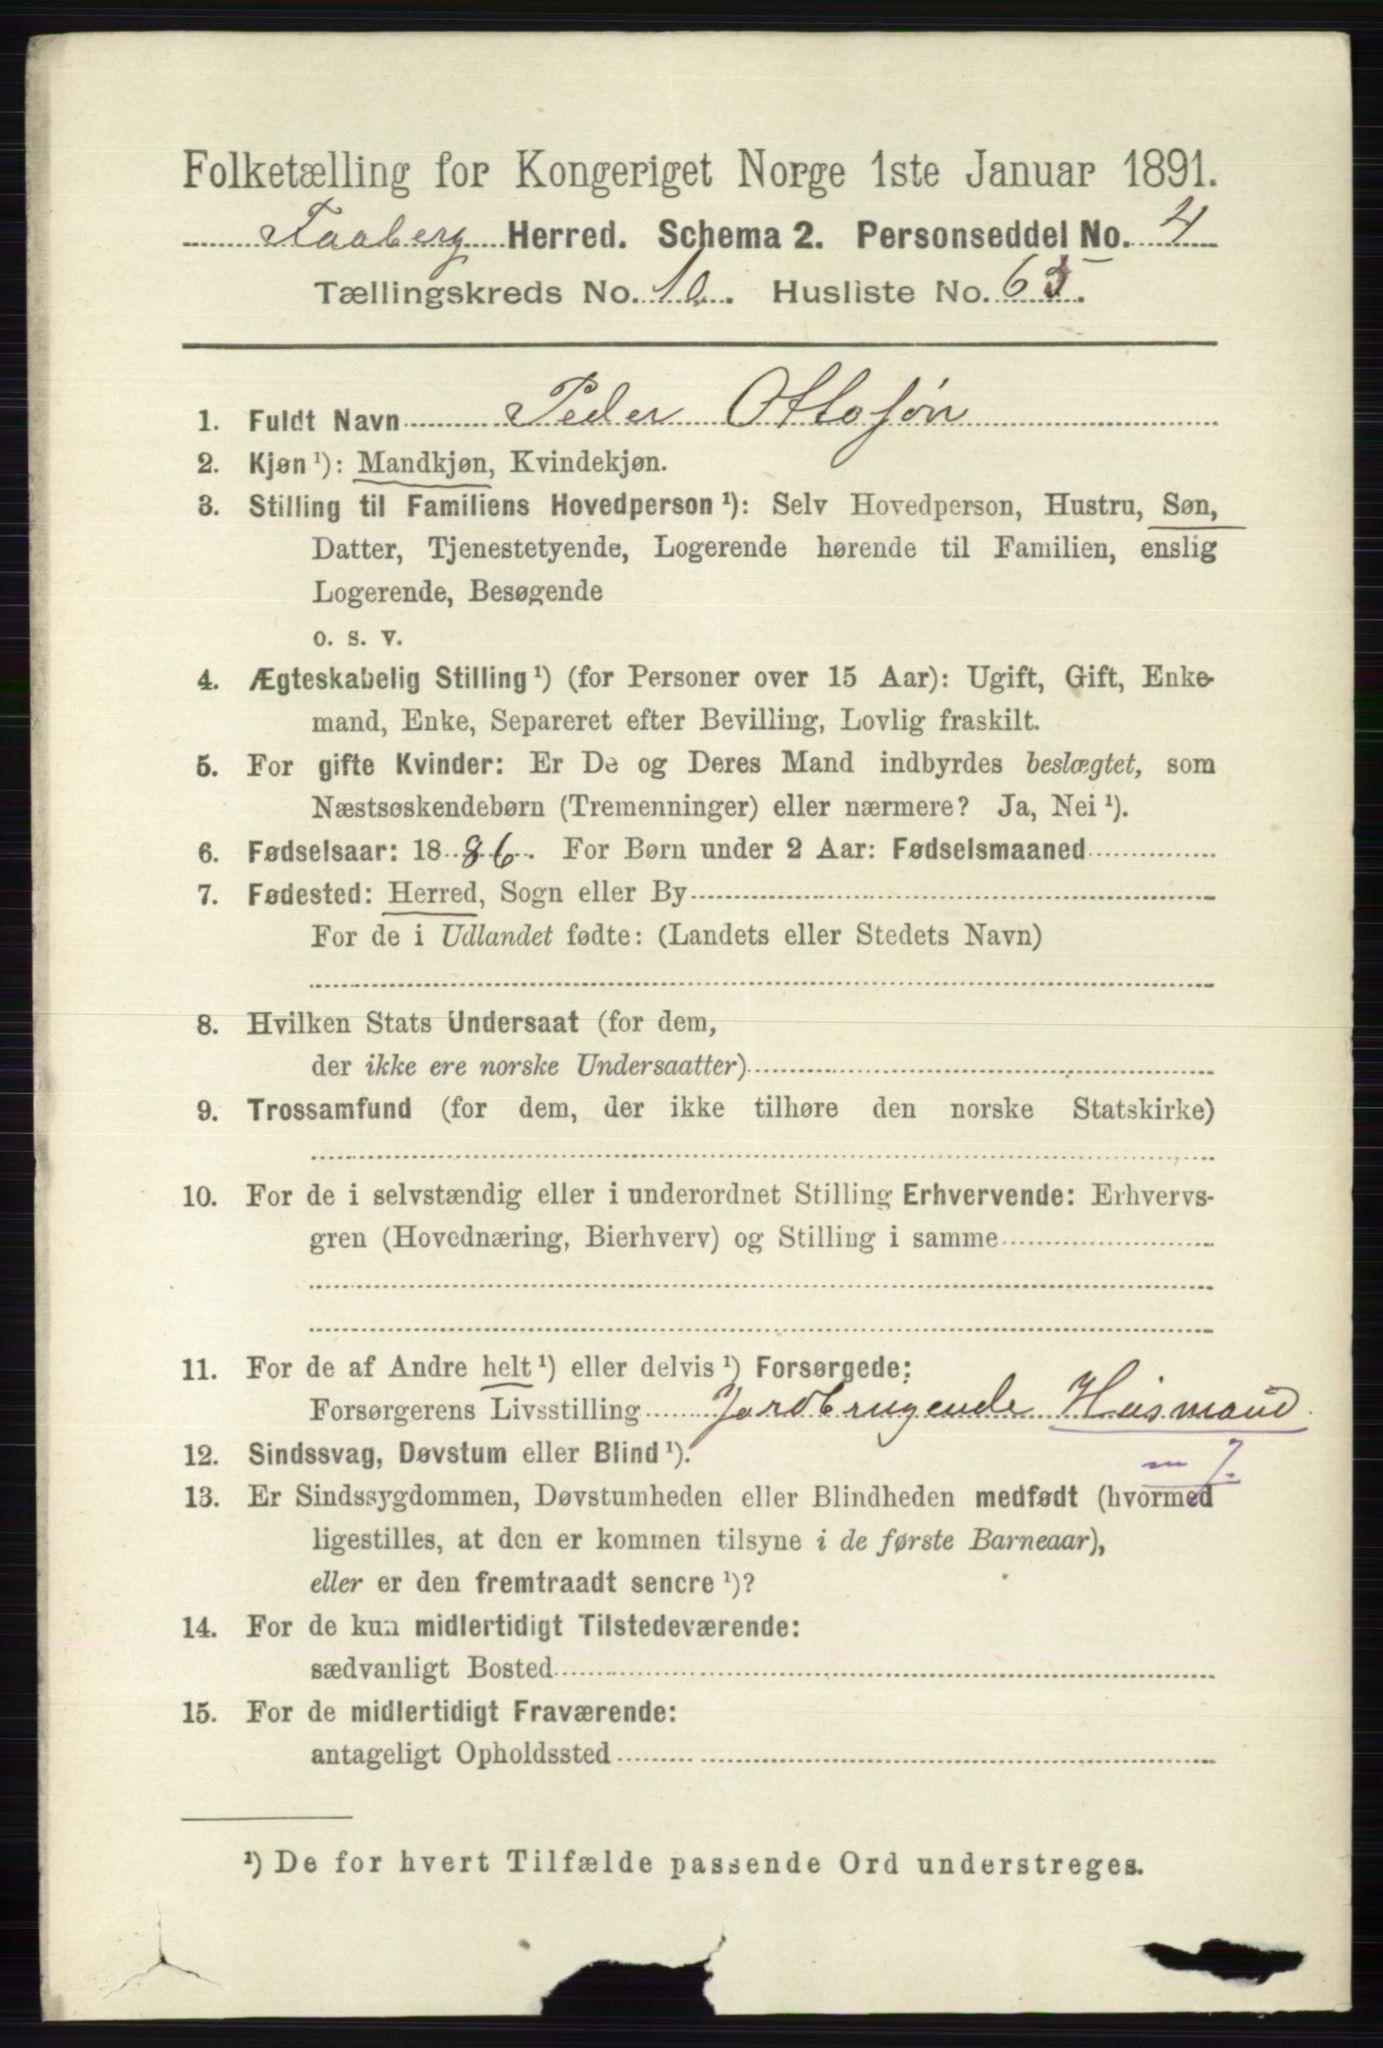 Folketælling for Kongeriget Norge 1ste Januar 1891.
Faaberg Herred. Schema 2. Personseddel No. 4
Tællingskreds No. 10. Husliste No. 65.
1. Fuldt Navn Peder Ottosøn
2. Kjøn ¹): Mandkjøn, Kvindekjøn.
3. Stilling til Familiens Hovedperson ¹): Selv Hovedperson, Hustru, Søn,
Datter, Tjenestetyende, Logerende hørende til Familien, enslig
Logerende, Besøgende
o. s. v.
4. Ægteskabelig Stilling ¹) (for Personer over 15 Aar): Ugift, Gift, Enke-
mand, Enke, Separeret efter Bevilling, Lovlig fraskilt.
5. For gifte Kvinder: Er De og Deres Mand indbyrdes beslægtet, som
Næstsøskendebørn (Tremenninger) eller nærmere? Ja, Nei ¹).
6. Fødselsaar: 1886. For Børn under 2 Aar: Fødselsmaaned
7. Fødested: Herred, Sogn eller By
For de i Udlandet fødte: (Landets eller Stedets Navn)
8. Hvilken Stats Undersaat (for dem,
der ikke ere norske Undersaatter)
9. Trossamfund (for dem, der ikke tilhøre den norske Statskirke)
10. For de i selvstændig eller i underordnet Stilling Erhvervende: Erhvervs-
gren (Hovednæring, Bierhverv) og Stilling i samme
11. For de af Andre helt ¹) eller delvis ¹) Forsørgede:
Forsørgerens Livsstilling Jordbrugende Husmand
12. Sindssvag, Døvstum eller Blind ¹).
13. Er Sindssygdommen, Døvstumheden eller Blindheden medfødt (hvormed
ligestilles, at den er kommen tilsyne i de første Barneaar),
eller er den fremtraadt senere ¹)?
14. For de kun midlertidigt Tilstedeværende:
sædvanligt Bosted
15. For de midlertidigt Fraværende:
antageligt Opholdssted
¹) De for hvert Tilfælde passende Ord understreges.